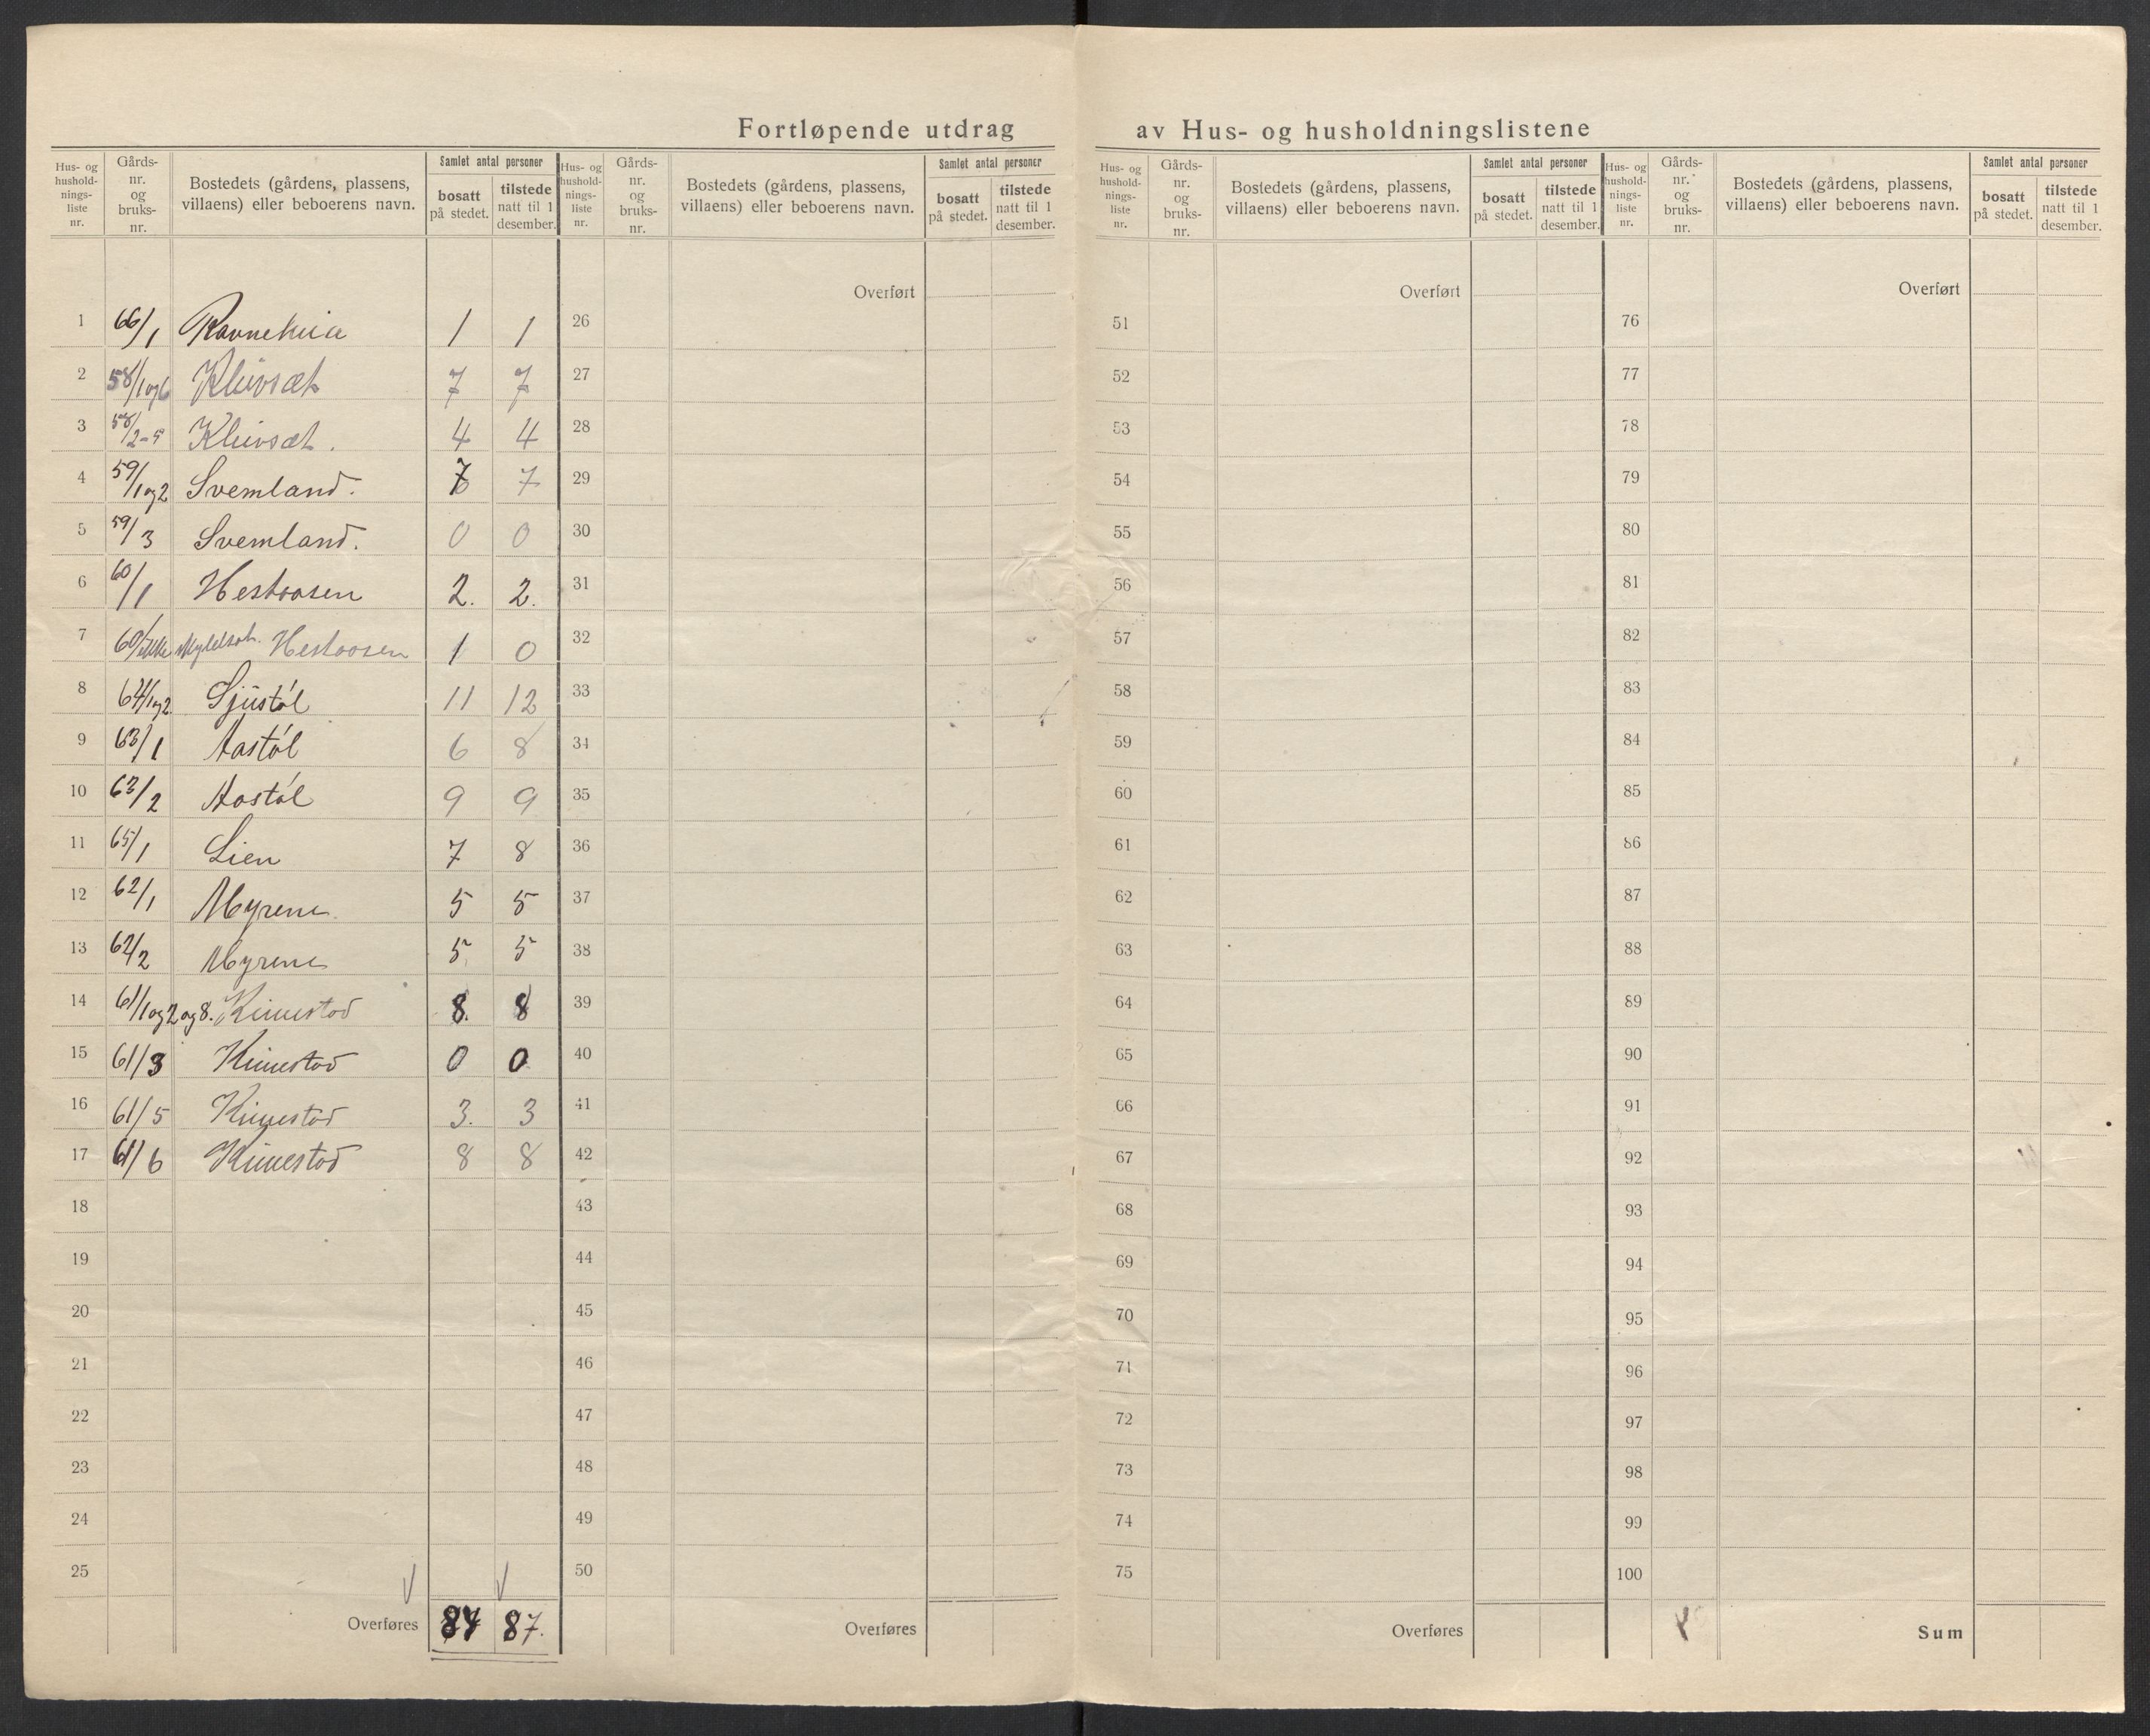 Fortløpende utdrag av Hus- og husholdningslistene
Hus- og husholdnings-liste nr. Gårds-nr. og bruks-nr. Bostedets (gårdens, plassens, villaens) eller beboerens navn. Samlet antal personer bosatt på stedet. tilstede natt til 1 desember.
1 66/1 1 1
2 58/1og6 Kleivsæt 7 7
3 58/2-5 Kleivsæt. 4 4
4 59/1og2 Svemland. 7 7
5 59/3 Svemland. 0 0
6 60/1 Hestaasen 2. 2.
7 60/ikke skyldsat. Hestaasen 1 0
8 64/1og2. Sjustøl 11 12
9 63/1 Aastøl 6 8
10 63/2 Aastøl 9 9
11 65/1 Lien 7 8
12 62/1 Myrene 5 5
13 62/2 Myrene 5 5
14 61/1og2og8. 8. 8
15 61/3 0 0
16 61/5 3. 3
17 61/6 8 8
18
19
20
21
22
23
24
25
Overføres 84 87.
Hus- og husholdnings-liste nr. Gårds-nr. og bruks-nr. Bostedets (gårdens, plassens, villaens) eller beboerens navn. Samlet antal personer bosatt på stedet. tilstede natt til 1 desember.
Overført
26
27
28
29
30
31
32
33
34
35
36
37
38
39
40
41
42
43
44
45
46
47
48
49
50
Overføres
Hus- og husholdnings-liste nr. Gårds-nr. og bruks-nr. Bostedets (gårdens, plassens, villaens) eller beboerens navn. Samlet antal personer bosatt på stedet. tilstede natt til 1 desember.
Overført
51
52
53
54
55
56
57
58
59
60
61
62
63
64
65
66
67
68
69
70
71
72
73
74
75
Overføres
Hus- og husholdnings-liste nr. Gårds-nr. og bruks-nr. Bostedets (gårdens, plassens, villaens) eller beboerens navn. Samlet antal personer bosatt på stedet. tilstede natt til 1 desember.
Overført
76
77
78
79
80
81
82
83
84
85
86
87
88
89
90
91
92
93
94
95
96
97
98
99
100
Sum